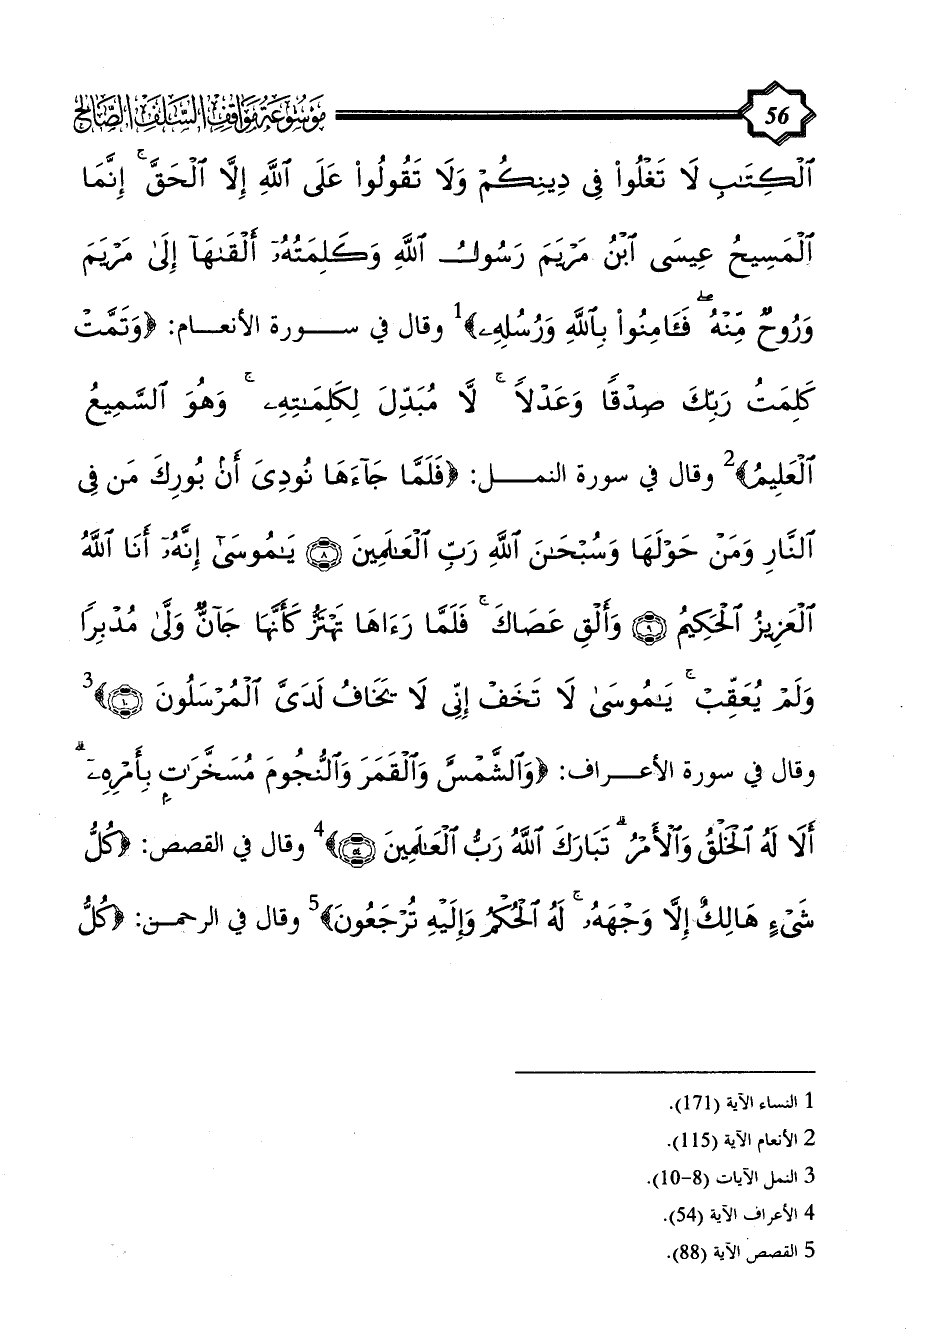 56
موسوعة مواقف السلف الصالح
ٱلْكِتَٰبِ لَا تَغْلُوا۟ فِى دِينِكُمْ وَلَا تَقُولُوا۟ عَلَى ٱللَّهِ إِلَّا ٱلْحَقَّ ۚ إِنَّمَا
ٱلْمَسِيحُ عِيسَى ٱبْنُ مَرْيَمَ رَسُولُ ٱللَّهِ وَكَلِمَتُهُۥٓ أَلْقَىٰهَآ إِلَىٰ مَرْيَمَ
وَرُوحٌ مِّنْهُ ۖ فَـَٔامِنُوا۟ بِٱللَّهِ وَرُسُلِهِۦ﴾1 وقال في سورة الأنعام: ﴿وَتَمَّتْ
كَلِمَتُ رَبِّكَ صِدْقًا وَعَدْلًا ۚ لَّا مُبَدِّلَ لِكَلِمَٰتِهِۦ ۚ وَهُوَ ٱلسَّمِيعُ
ٱلْعَلِيمُ﴾2 وقال في سورة النمل: ﴿فَلَمَّا جَآءَهَا نُودِىَ أَنۢ بُورِكَ مَن فِى
ٱلنَّارِ وَمَنْ حَوْلَهَا وَسُبْحَٰنَ ٱللَّهِ رَبِّ ٱلْعَٰلَمِينَ ۝٨ يَٰمُوسَىٰٓ إِنَّهُۥٓ أَنَا ٱللَّهُ
ٱلْعَزِيزُ ٱلْحَكِيمُ ۝٩ وَأَلْقِ عَصَاكَ ۚ فَلَمَّا رَءَاهَا تَهْتَزُّ كَأَنَّهَا جَآنٌّ وَلَّىٰ مُدْبِرًا
وَلَمْ يُعَقِّبْ ۚ يَٰمُوسَىٰ لَا تَخَفْ إِنِّى لَا يَخَافُ لَدَىَّ ٱلْمُرْسَلُونَ ۝١٠﴾3
وقال في سورة الأعراف: ﴿وَٱلشَّمْسَ وَٱلْقَمَرَ وَٱلنُّجُومَ مُسَخَّرَٰتٍۭ بِأَمْرِهِۦٓ ۗ
أَلَا لَهُ ٱلْخَلْقُ وَٱلْأَمْرُ ۗ تَبَارَكَ ٱللَّهُ رَبُّ ٱلْعَٰلَمِينَ ۝٥٤﴾4 وقال في القصص: ﴿كُلُّ
شَىْءٍ هَالِكٌ إِلَّا وَجْهَهُۥ ۚ لَهُ ٱلْحُكْمُ وَإِلَيْهِ تُرْجَعُونَ﴾5 وقال في الرحمن: ﴿كُلُّ
1 النساء الآية (171).
2 الأنعام الآية (115).
3 النمل الآيات (8-10).
4 الأعراف الآية (54).
5 القصص الآية (88).